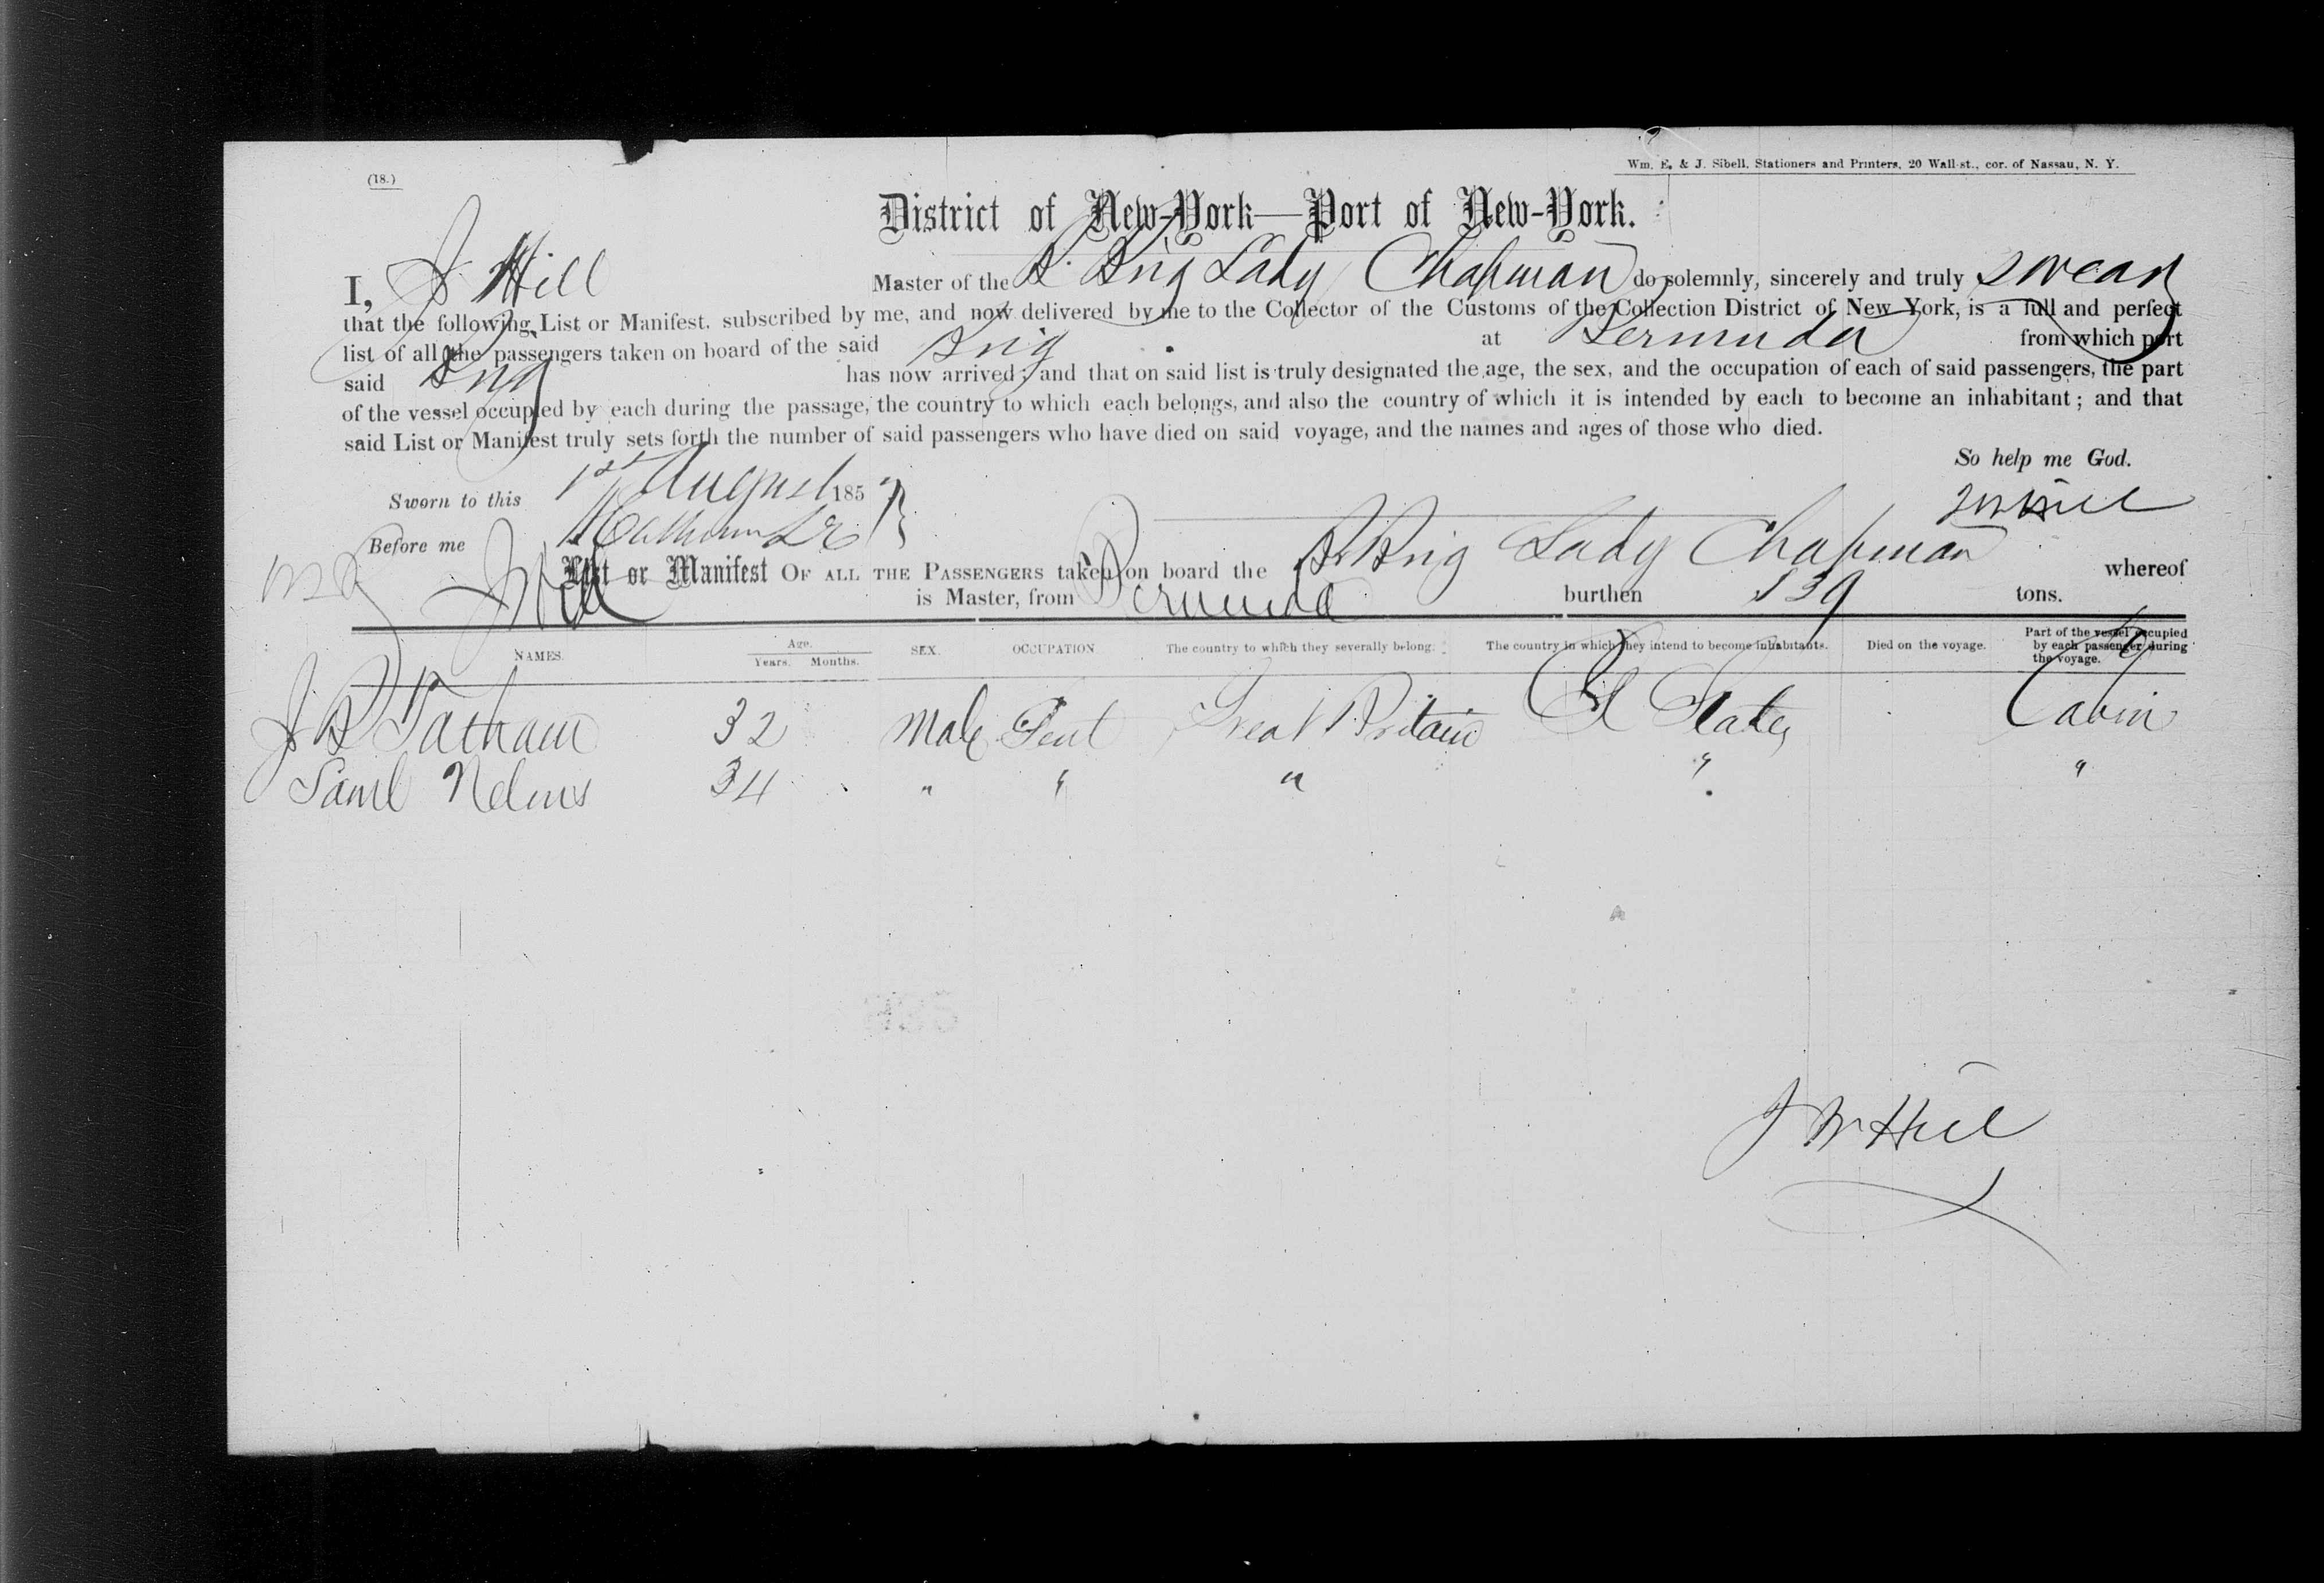 (18.)
Wm. E. & J. Sibell, Stationers and Printers, 20 Wall-st., cor. of Nassau, N. Y.
District of New-York—Port of New-York.
I, J Hill Master of the B. Brig Lady Chapman do solemnly, sincerely and truly swear
that the following List or Manifest, subscribed by me, and now delivered by me to the Collector of the Customs of the Collection District of New York, is a full and perfect
list of all the passengers taken on board of the said Brig at Bermuda from which port
said Brig has now arrived; and that on said list is truly designated the age, the sex, and the occupation of each of said passengers, the part
of the vessel occupied by each during the passage, the country to which each belongs, and also the country of which it is intended by each to become an inhabitant; and that
said List or Manifest truly sets forth the number of said passengers who have died on said voyage, and the names and ages of those who died.
So help me God.
Sworn to this 1st August 185
J W Hill
Before me
List or Manifest OF ALL THE PASSENGERS taken on board the Br Brig Lady Chapman whereof
J Hill is Master, from Bermuda burthen 139 tons.
NAMES. Age. Years. Months. SEX. OCCUPATION The country to which they severally belong. The country in which they intend to become inhabitants. Died on the voyage. Part of the vessel occupied by each passenger during the voyage.
J B Tatham 32 Male Gent Great Britain States Cabin
Saml Nelmes 34 " " " " "
J W Hill